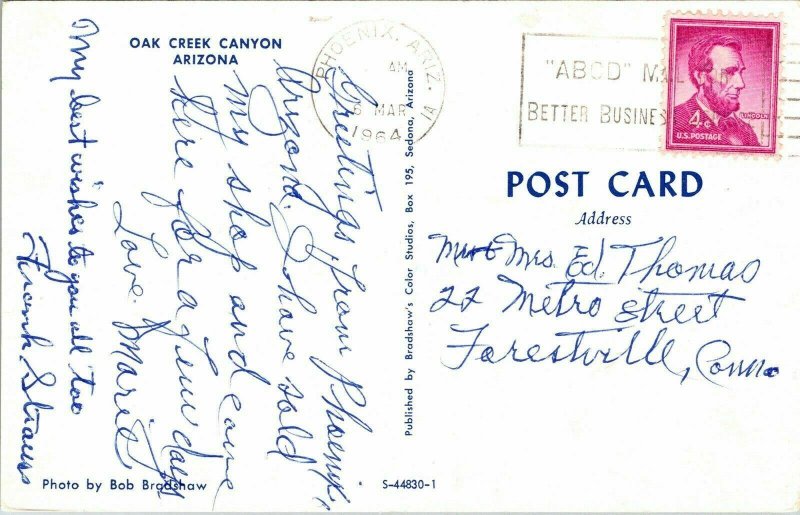 OAK CREEK CANYON
ARIZONA
Greetings from Phoenix,
Arizona. I have sold
my shop and came
here for a few days
Love. Marie
My best wishes to you all too
Frank Strauss
Photo by Bob Bradshaw
S-44830-1
Published by Bradshaw's Color Studios, Box 195, Sedona, Arizona
PHOENIX, ARIZ.
AM
6 MAR
1964
1A
"ABCD"
BETTER BUSINE
LINCOLN
4¢
U.S. POSTAGE
POST CARD
Address
Mr & Mrs. Ed. Thomas
22 Metro Street
Forestville, Conn.